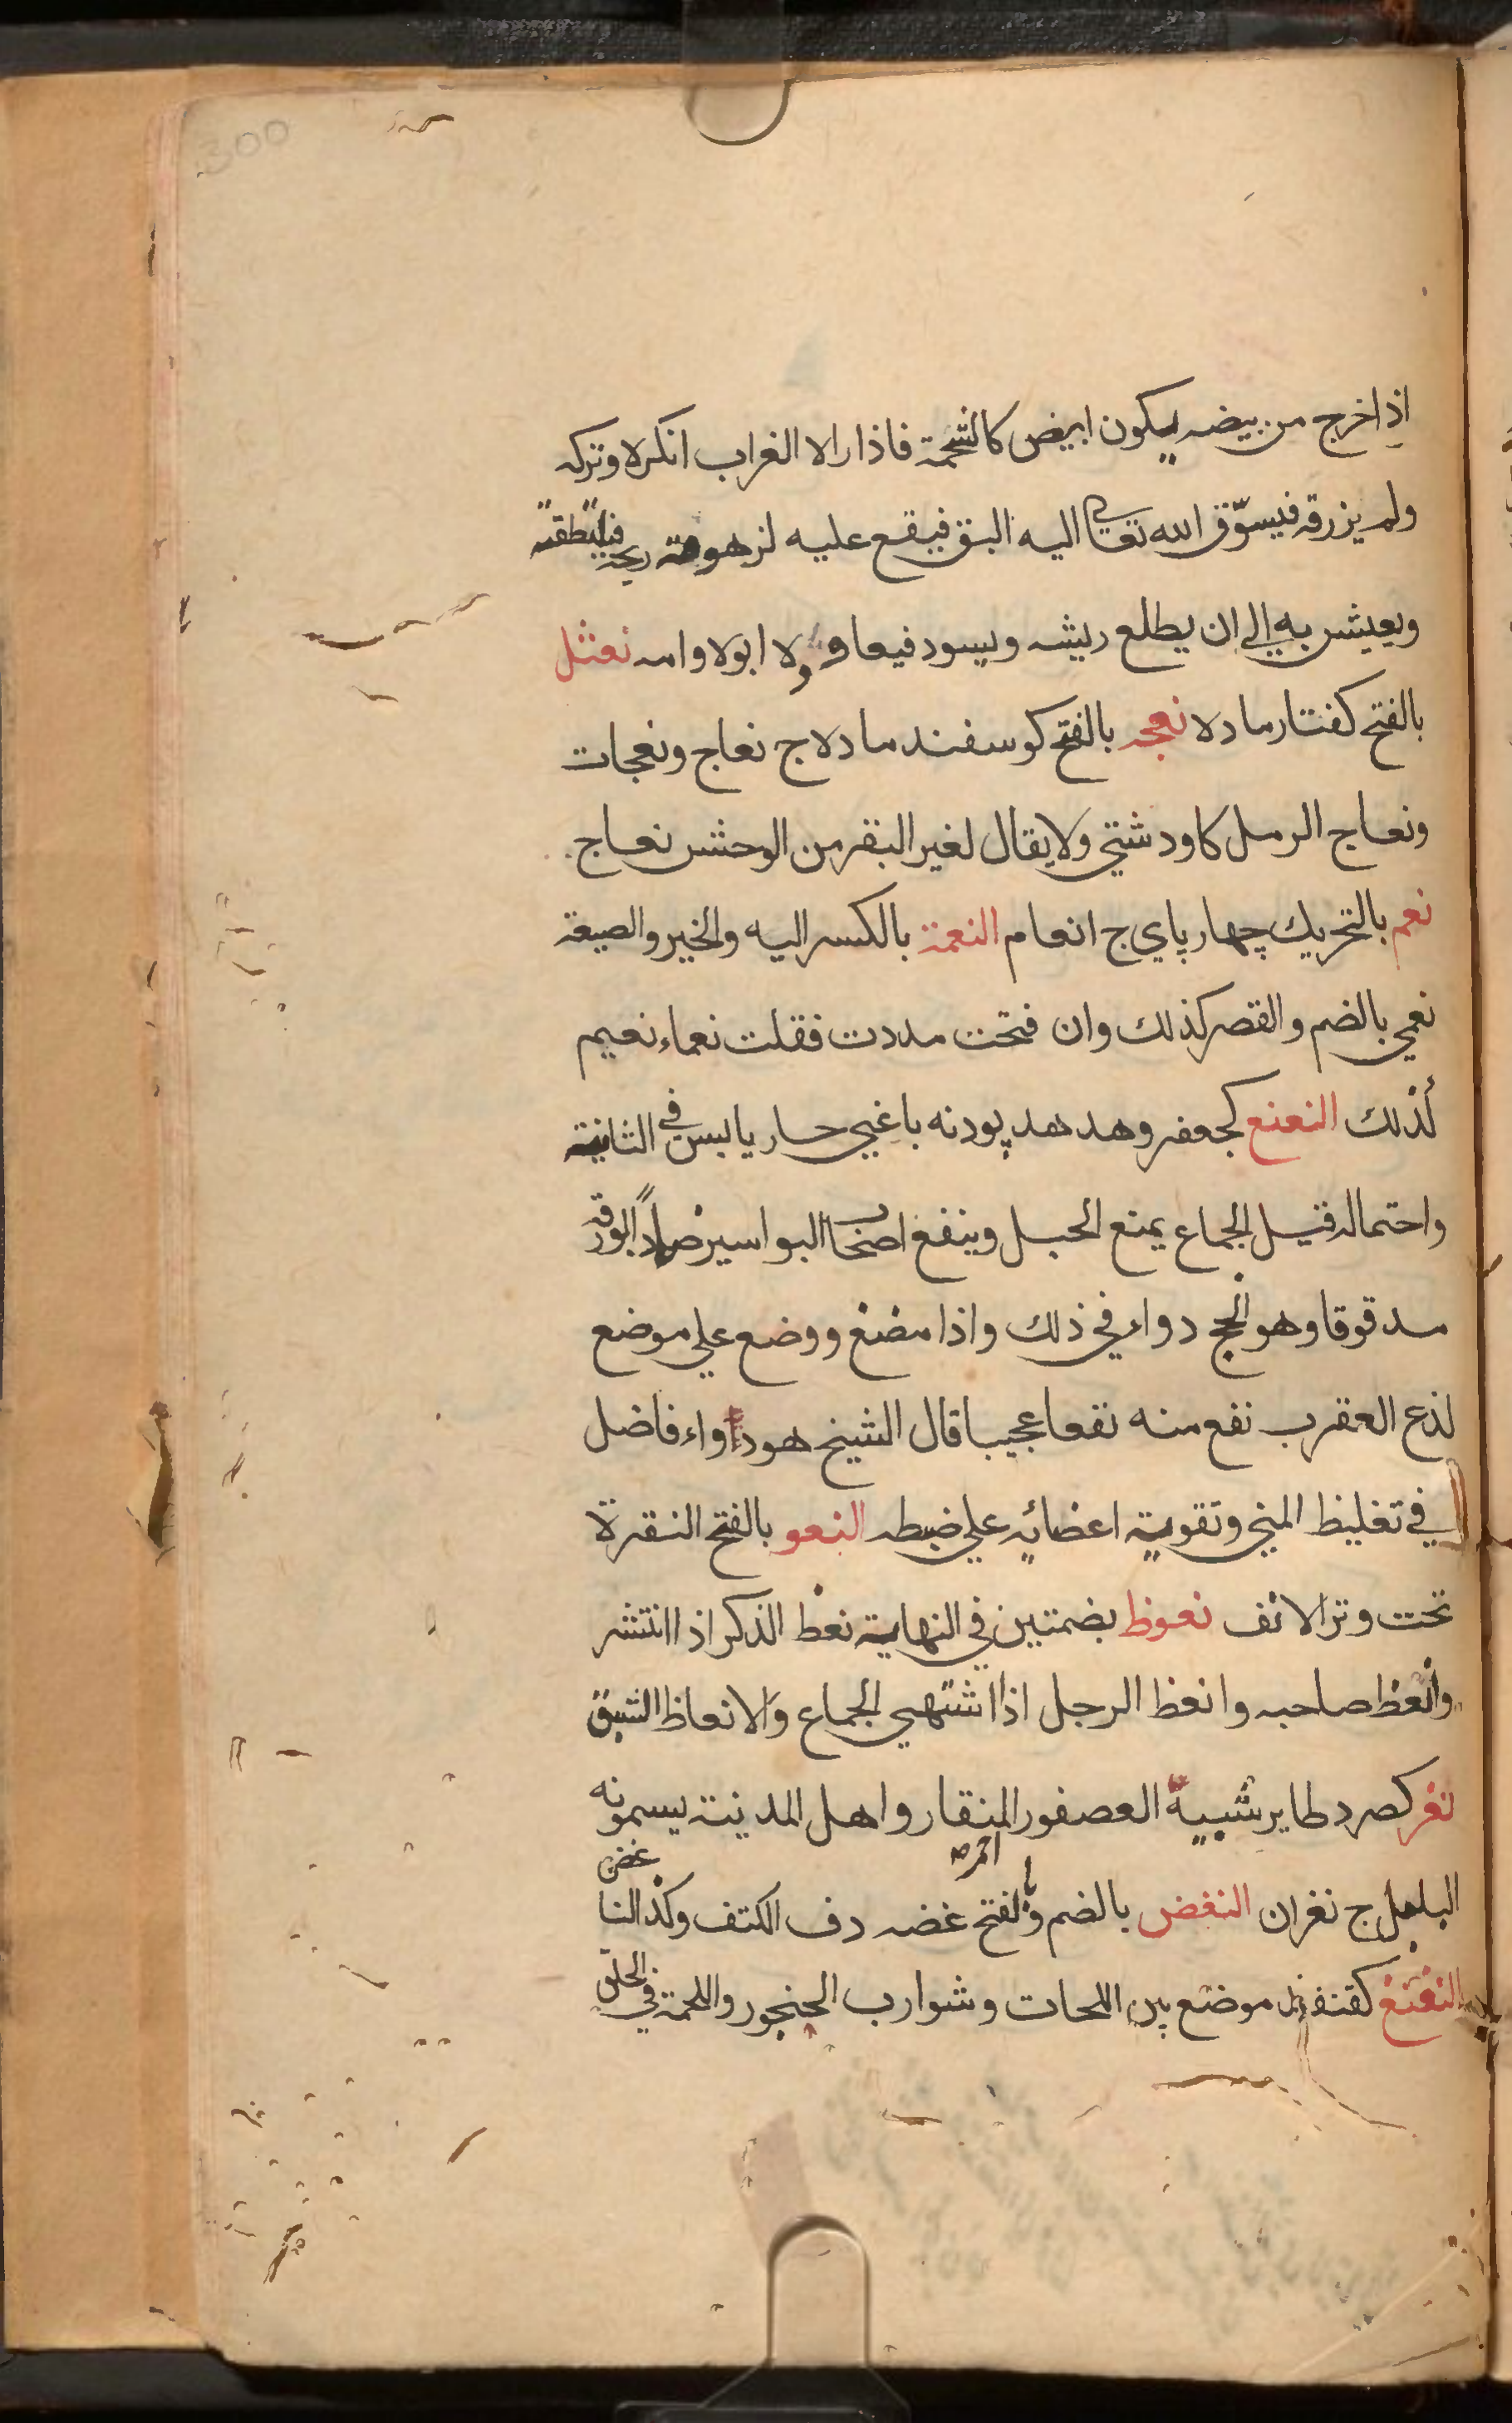 300
اذا خرج من بيضه يكون ابيض كالشحمة فاذا راه الغراب انكره وتركه
ولم يزرقه فيسوّق الله تعالي اليه البق فيقع عليه لزهومة ريحه فيلتقطه
ويعيش به الي ان يطلع ريشه ويسود فيعاوده ابوه وامه نعثل
بالفتح كفتار ماده نعجه بالفتح كوسفند ماده ج نعاج ونعجات
ونعاج الرمل كاو دشتي ولا يقال لغير البقر من الوحش نعاج
نعم بالتحريك چهار پاي ج انعام النعمة بالكسر اليه والخير والصيعة
نعمي بالضم والقصر كذلك وان فتحت مددت فقلت نعماء نعيم
كذلك النعنع كجعفر وهدهد پودنه باغي حار يابس في الثانية
واحتماله قبل الجماع يمنع الحبل وينفع اصحاب البواسير ضماداً بورقه
مدقوقا وهو انجح دواء في ذلك واذا مضغ ووضع علي موضع
لذع العقرب نفع منه نفعا عجيبا قال الشيخ هو دواء فاضل
في تغليظ المني وتقوية اعضائه علي ضبطه النعو بالفتح النقرة
تحت وتر الانف نعوظ بضمتين في النهاية نعظ الذكر اذا انتشر
وانعظ صاحبه وانعظ الرجل اذا اشتهي الجماع والانعاظ الشبق
نغر كصرد طاير شبيه العصفور المنقار واهل المدينة يسمونه
احمر
البلبل ج نغران النغض بالضم وبالفتح غضه دف الكتف وكذا الناغض
النغنغ كقنفذ موضع بين اللهات وشوارب الحنجور واللحمة في الحلق